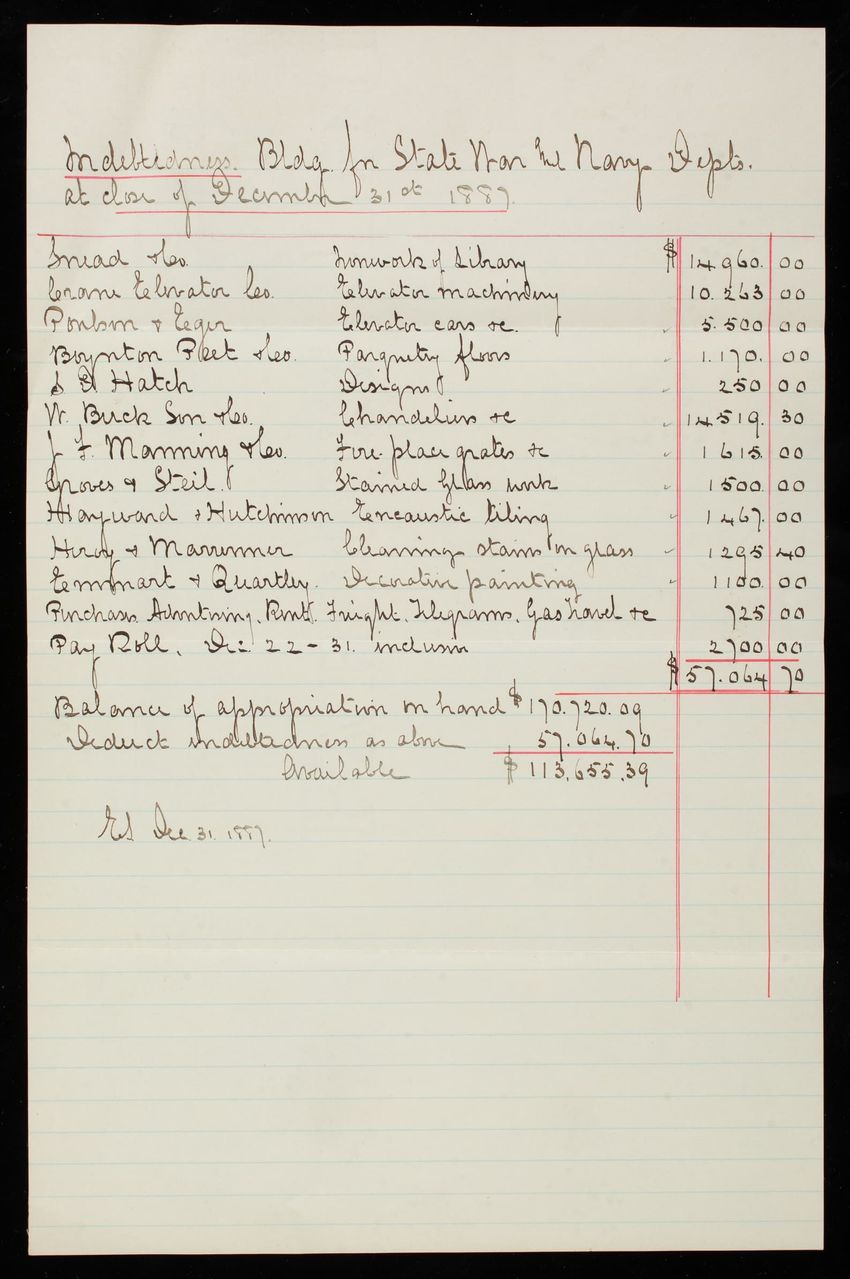 Indebtedness. Bldg. for State War and Navy Depts.
at close of December 31st 1887.
Snead & Co. Ironwork of Library $ 14.960. 00
Crane Elevator Co. Elevator machinery 10.263 00
Poulson & Eger Elevator cars &c. 5.500 00
Boynton Peet & Co. Parquetry floors 1.170. 00
Hatch Designs 250 00
W. Buck Son & Co. Chandeliers &c 14519. 30
J F. Manning & Co. Fire-place grates &c 1615. 00
Groves & Steil. Stained Glass work 1500. 00
Hayward & Hutchinson Encaustic tiling 1467. 00
Heroy & Marrenner Cleaning stains on glass 1295 40
Emmart & Quartley. Decorative painting 1100. 00
Purchases. Advertising. Rent. Freight. Telegrams. Gas travel &c 725 00
Pay Roll. Dec. 22-31. inclusive 2700 00
$ 57.064 70
Balance of appropriation on hand $ 170.720.09
Deduct indebtedness as above 57.064.70
Available $ 113,655.39
Dec. 31. 1887.